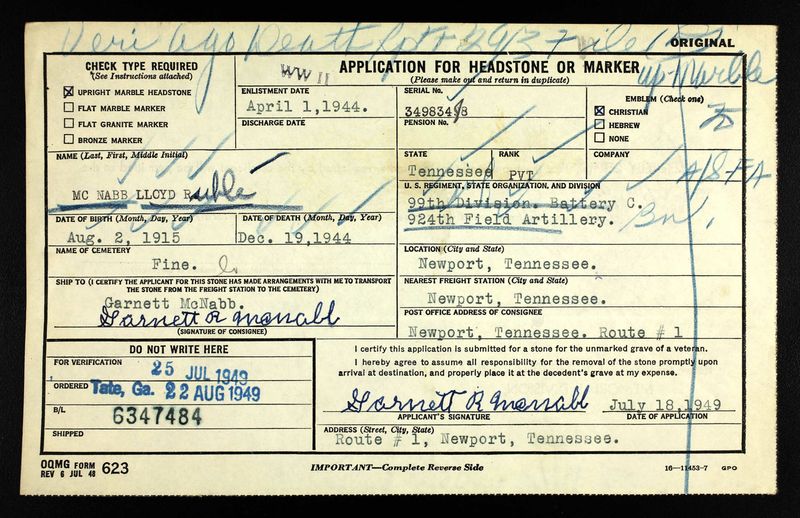 Veri Ago Death Rpt # 2937 File
ORIGINAL
up Marble
CHECK TYPE REQUIRED
(See Instructions attached)
WW II
APPLICATION FOR HEADSTONE OR MARKER
(Please make out and return in duplicate)
UPRIGHT MARBLE HEADSTONE
FLAT MARBLE MARKER
FLAT GRANITE MARKER
BRONZE MARKER
ENLISTMENT DATE
April 1,1944.
DISCHARGE DATE
SERIAL No.
34983498
PENSION No.
EMBLEM (Check one)
CHRISTIAN
HEBREW
NONE
NAME (Last, First, Middle Initial)
MC NABB LLOYD Ruble
STATE
Tennessee
RANK
PVT
COMPANY
A/SFA
U. S. REGIMENT, STATE ORGANIZATION, AND DIVISION
99th Division. Battery C.
924th Field Artillery. Bn.
DATE OF BIRTH (Month, Day, Year)
Aug. 2, 1915
DATE OF DEATH (Month, Day, Year)
Dec. 19,1944
NAME OF CEMETERY
Fine.
LOCATION (City and State)
Newport, Tennessee.
SHIP TO (I CERTIFY THE APPLICANT FOR THIS STONE HAS MADE ARRANGEMENTS WITH ME TO TRANSPORT
THE STONE FROM THE FREIGHT STATION TO THE CEMETERY)
Garnett McNabb.
Garnett R McNabb
(SIGNATURE OF CONSIGNEE)
NEAREST FREIGHT STATION (City and State)
Newport, Tennessee.
POST OFFICE ADDRESS OF CONSIGNEE
Newport, Tennessee. Route # 1
DO NOT WRITE HERE
FOR VERIFICATION
25 JUL 1949
ORDERED
Tate, Ga. 22 AUG 1949
B/L
6347484
SHIPPED
I certify this application is submitted for a stone for the unmarked grave of a veteran.
I hereby agree to assume all responsibility for the removal of the stone promptly upon
arrival at destination, and properly place it at the decedent's grave at my expense.
Garnett R McNabb July 18,1949
APPLICANT'S SIGNATURE DATE OF APPLICATION
ADDRESS (Street, City, State)
Route # 1, Newport, Tennessee.
OQMG FORM 623
REV 6 JUL 48
IMPORTANT—Complete Reverse Side
16—11453-7 GPO